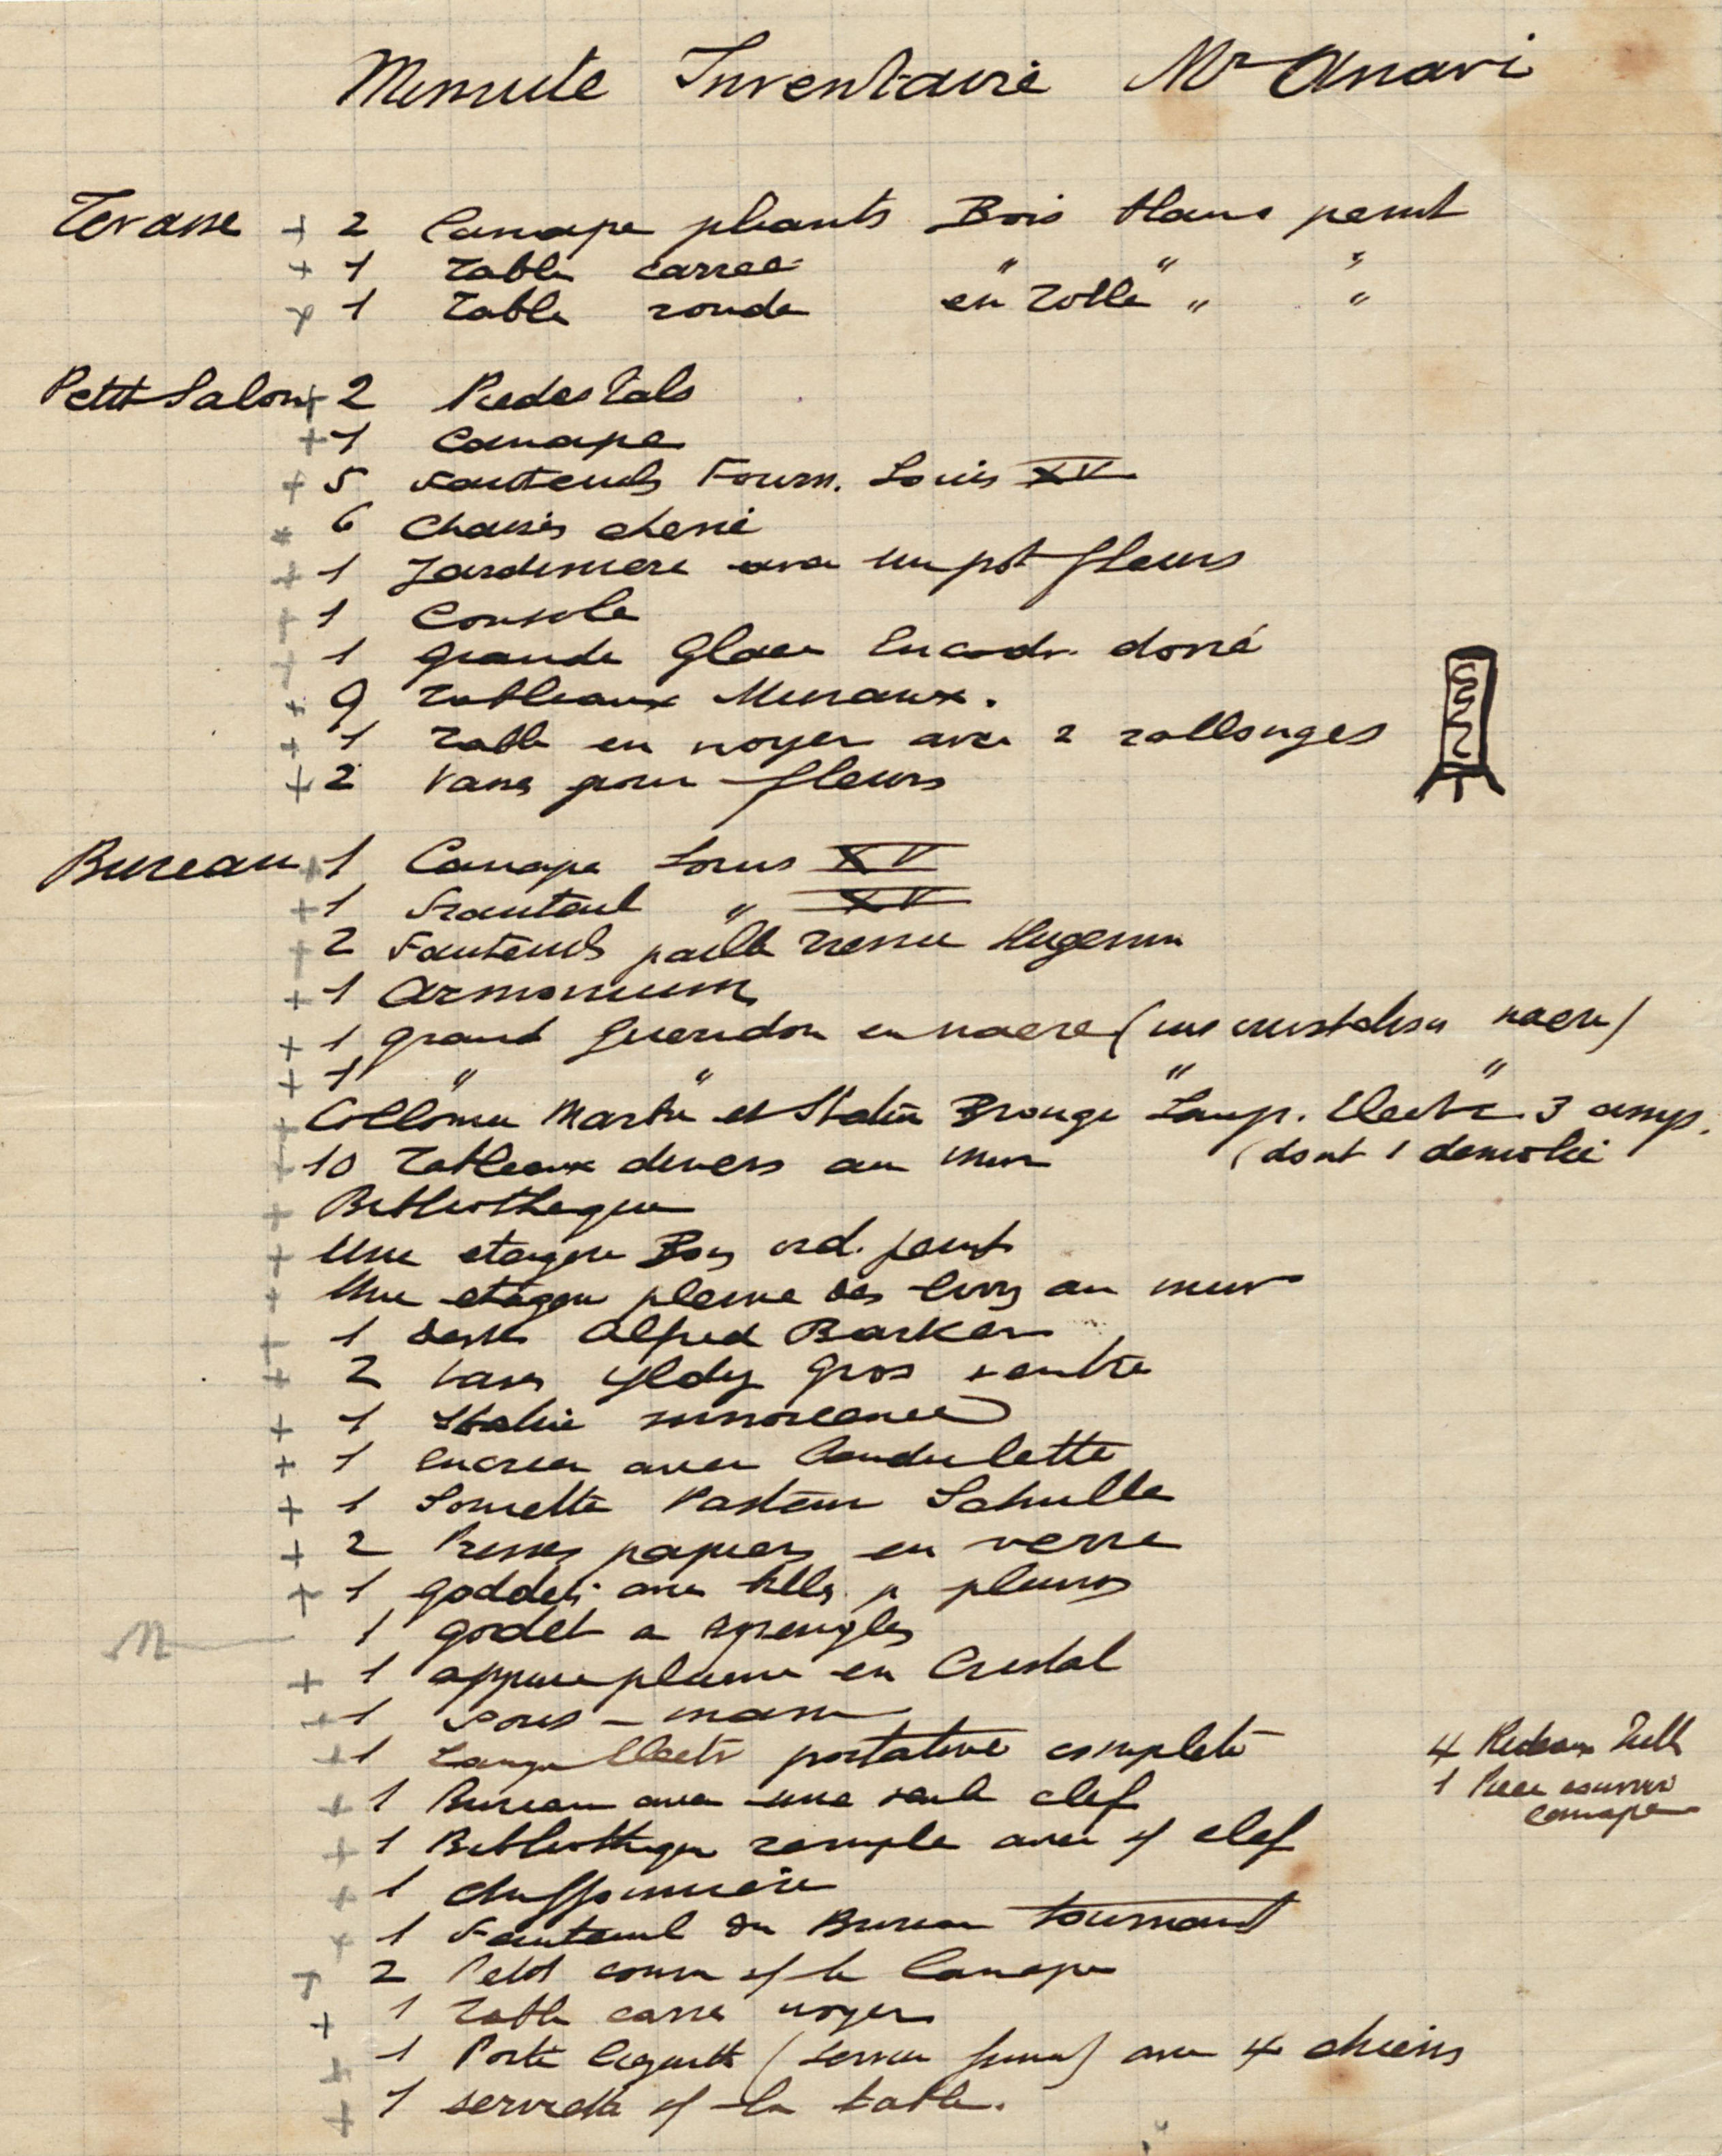 Minute Inventaire Mr Anavi
Terasse + 2 Canape pliants Bois blanc peint
+ 1 Table carree " " "
x 1 Table ronde en Tolle " "
Petit Salon + 2 Piedestals
+ 1 Canape
+ 5 Fauteuils Fourn. Louis XV
+ 6 Chaises chene
+ 1 Jardiniere avec un pot fleurs
+ 1 Console
+ 1 grande Glace Encadr. doré
+ 9 Tableaux Muraux.
+ 1 Table en noyer avec 2 rallonges
+ 2 Vases pour fleurs
Bureau + 1 Canape Louis XV
+ 1 Frauteuil " XV
+ 2 Fauteuils paille
+ 1 Armonium
+ 1 grand Gueridon en nacre ( nacre)
+ 1 " " " "
+ Collonne Marbre et Statue Bronze Lamp. Electr. 3 amp.
10 Tableaux divers au mur (dont 1 demolie
+ Bibliotheque
+ Une etagere Bois ord. peint
+ Une etagere pleine des livres au mur
+ 1 Alfred Barker
+ 2 Vases Yldiz Gros ventre
+ 1 Statue
+ 1 Encrier avec Pendulette
+ 1 Sonnette Pasteur Schulle
+ 2 Presses papiers en verre
+ 1 goddet avec p plumes
n 1 godet a epengles
+ 1 appuie plume en Cristal
+ 1 Sous - main
+ 1 Lampe Electr portative complete
4 Rideaux Tull
+ 1 Bureau avec une seule clef
1 Piece couvrir
canape
+ 1 Bibliotheque remplie avec s/ clef
+ 1 chiffonniere
x 1 Fauteuil du Bureau tournant
+ 2 Petit s/ le Canape
+ 1 Table carre noyer
+ 1 Porte Cigarette ( ) avec 4 chiens
+ 1 serviette s/ la table.